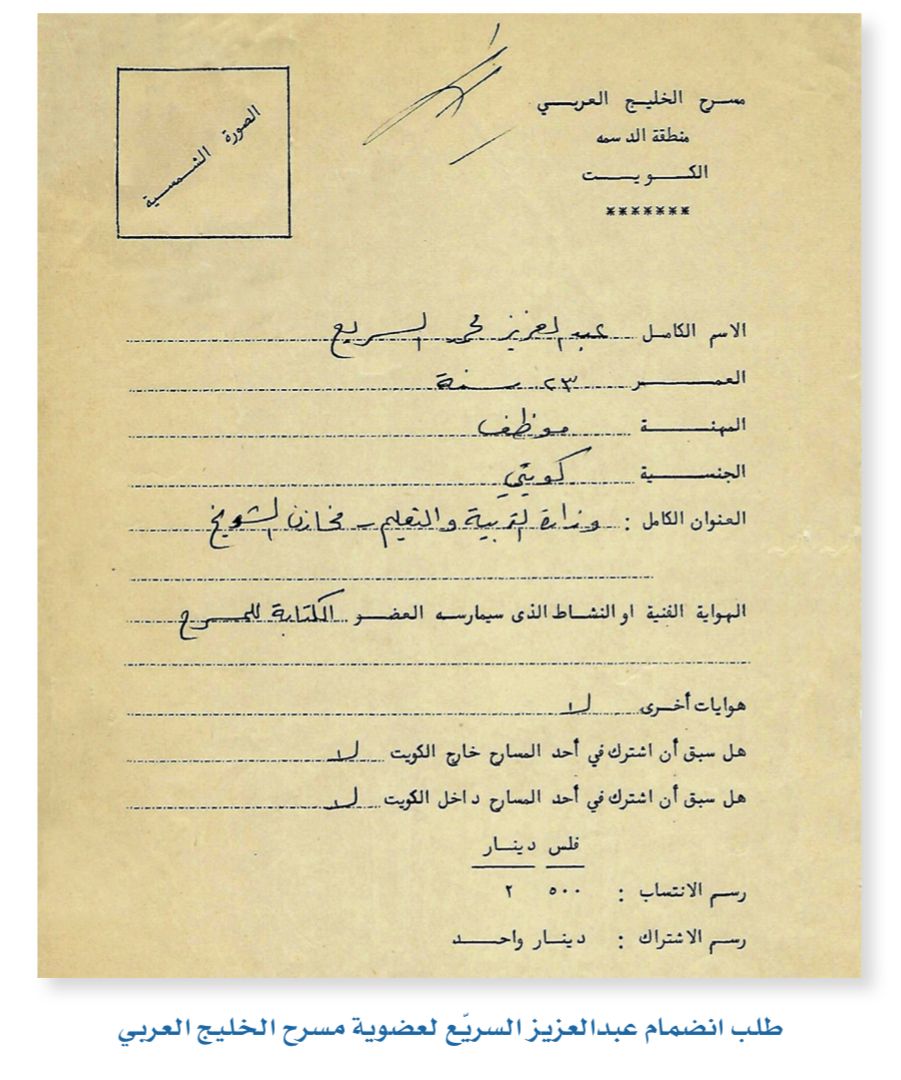 مسرح الخليج العربي
منطقة الدسمه
الكويت
*******
الصورة الشمسية
الاسم الكامل عبد العزيز محمد السريع
العمر ٢٣ سنة
المهنة موظف
الجنسية كويتي
العنوان الكامل : وزارة التربية والتعليم – مخازن الشويخ
الهواية الفنية او النشاط الذى سيمارسه العضو الكتابة للمسرح
هوايات أخرى لا
هل سبق أن اشترك في أحد المسارح خارج الكويت لا
هل سبق أن اشترك في أحد المسارح داخل الكويت لا
فلس دينار
رسم الانتساب : ٥٠٠ ٢
رسم الاشتراك : دينار واحد
طلب انضمام عبدالعزيز السريّع لعضوية مسرح الخليج العربي